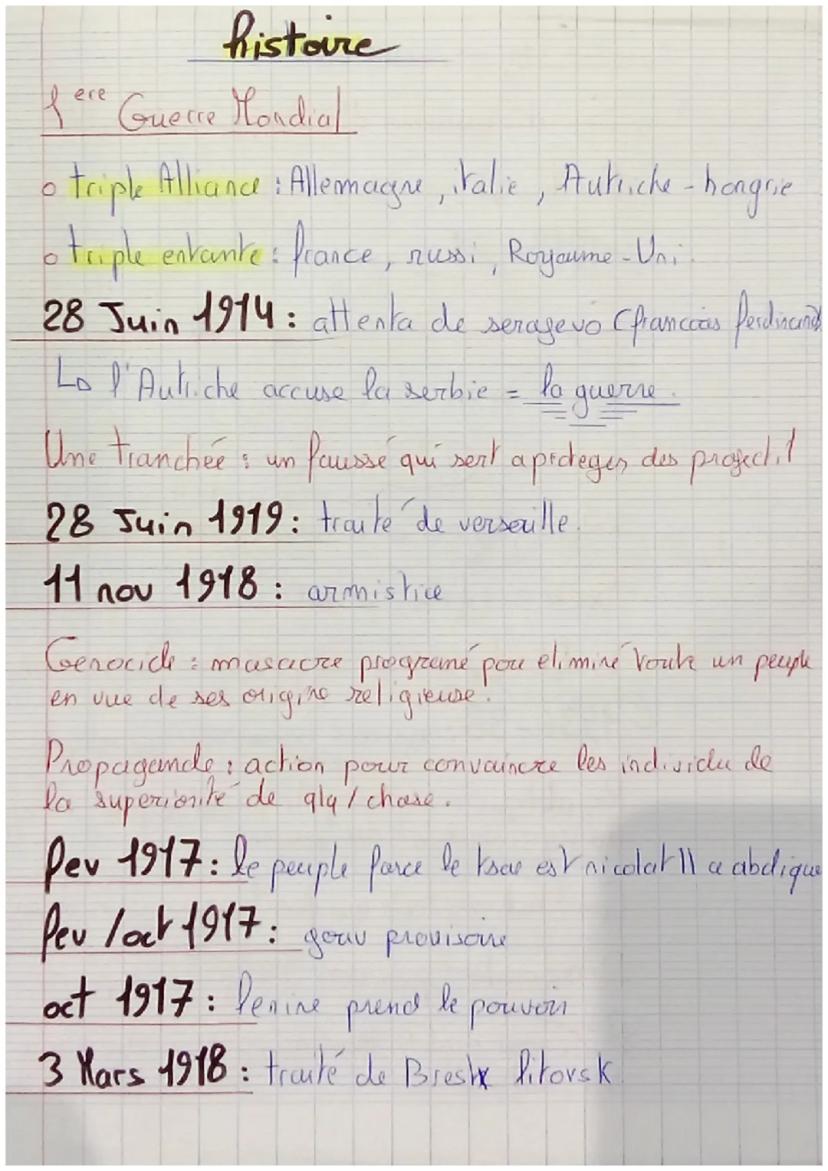 histoire
1ere Guerre Mondial
o triple Alliance : Allemagne, italie, Autriche-hongrie
o triple entante : france, russi, Royaume-Uni.
28 Juin 1914 : attenta de serajevo (francois ferdinand)
L> l'Autriche accuse la serbie = la guerre.
Une tranchée : un faussé qui sert a proteger des projectil
28 Juin 1919 : traité de verseille.
11 nov 1918 : armistice
Genocide : masacre programé pou eliminé toute un peuple
en vue de ses origine religieuse.
Propagande : action pour convaincre les individu de
la superiorité de qlq/chose.
fev 1917 : le peuple force le tsar est nicolat II a abdique
fev/oct 1917 : gouv provisoire
oct 1917 : lenine prend le pouvoir
3 Mars 1918 : traité de Brest litovsk